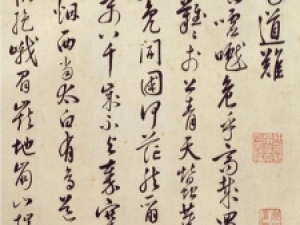 道難
嚱危乎高哉
難于上青天蠶叢
開國何茫然爾
万八千歲不与秦塞
烟西當太白有鳥道
絶峨眉巔地崩山摧